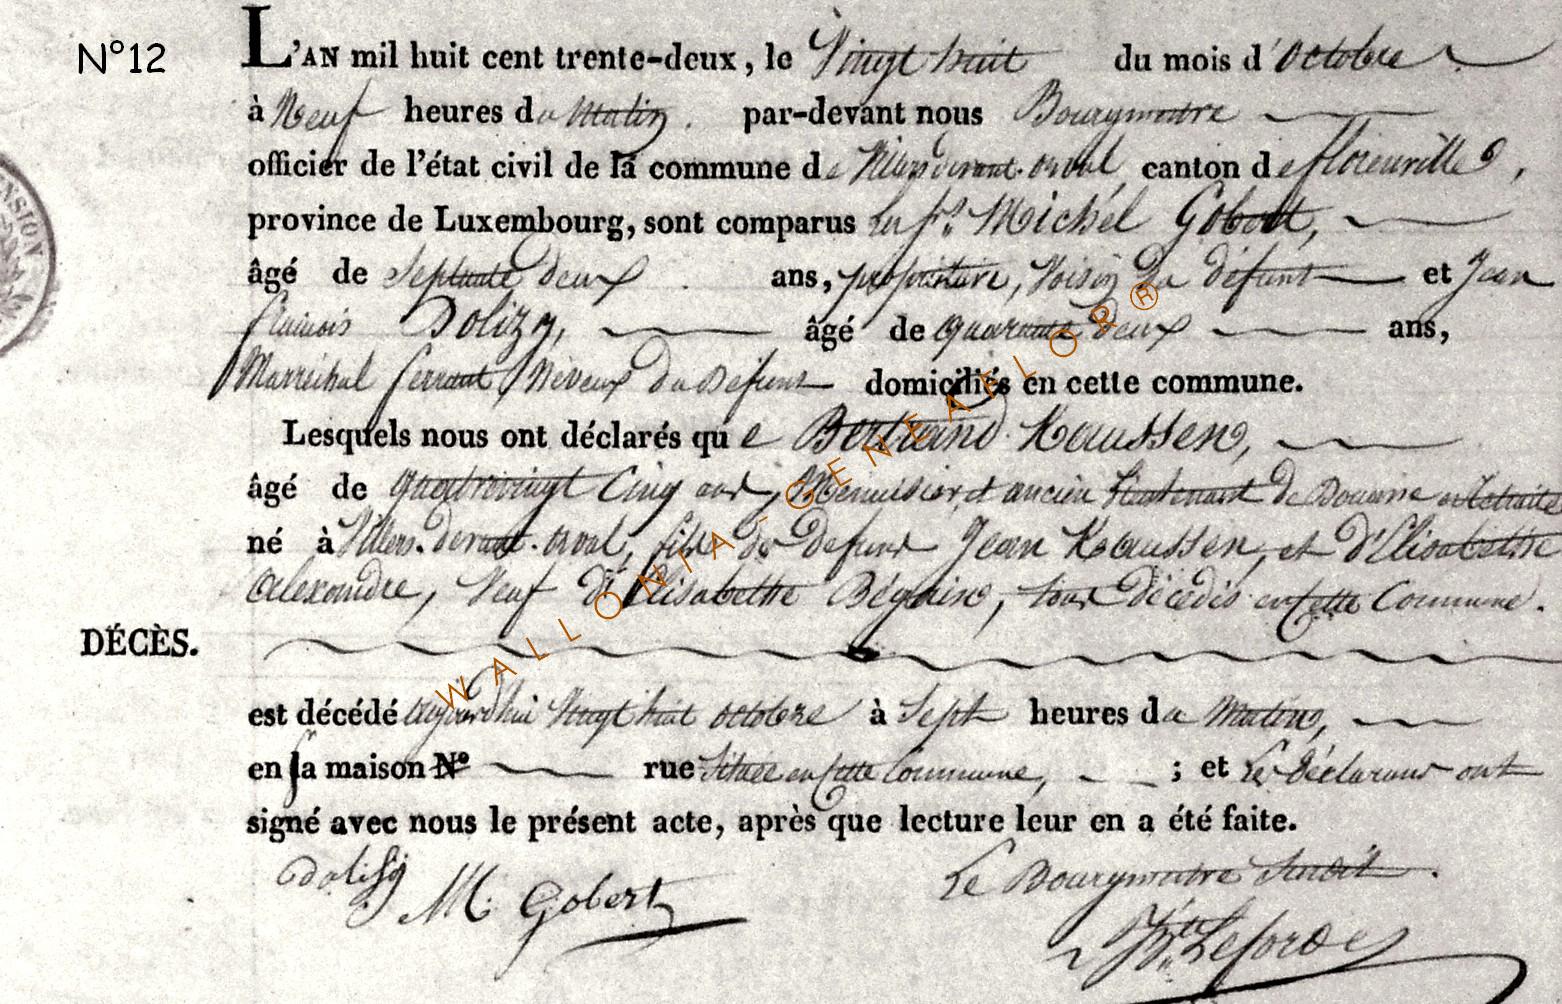 N°12
L'AN mil huit cent trente-deux, le Vingt huit du mois d'octobre
à Neuf heures du Matin. par-devant nous Bourgmestre
officier de l'état civil de la commune de Villers devant-orval, canton de florenville,
province de Luxembourg, sont comparus Les Srs Michel Gobert,
âgé de Septante deux ans, propriétaire, Voisin du défunt et Jean
francois Dolizy, âgé de quarante deux ans,
Marréchal ferrant, Neveux du Défunt domiciliés en cette commune.
Lesquels nous ont déclarés que Bertrand Kaussen,
âgé de quatrevingt Cinq ans, Menuisier, et ancien Lieutenant de Douanne en Retraite
né à Villers-devant-orval, fils de defunt Jean Kaussen, et d'Elisabethe
Alexandre, Veuf d'Elisabethe Béguin, tous décédés en Cette Commune.
DÉCÈS.
est décédé aujourd'hui Vingt huit octobre à Sept heures du Matin,
en sa maison N° rue Située en Cette Commune, ; et Les Déclarans ont
signé avec nous le présent acte, après que lecture leur en a été faite.
Dolisy M. Gobert Le Bourgmestre Susdit.
Lefor
WALLONIA-GENEAELOR®
NSION